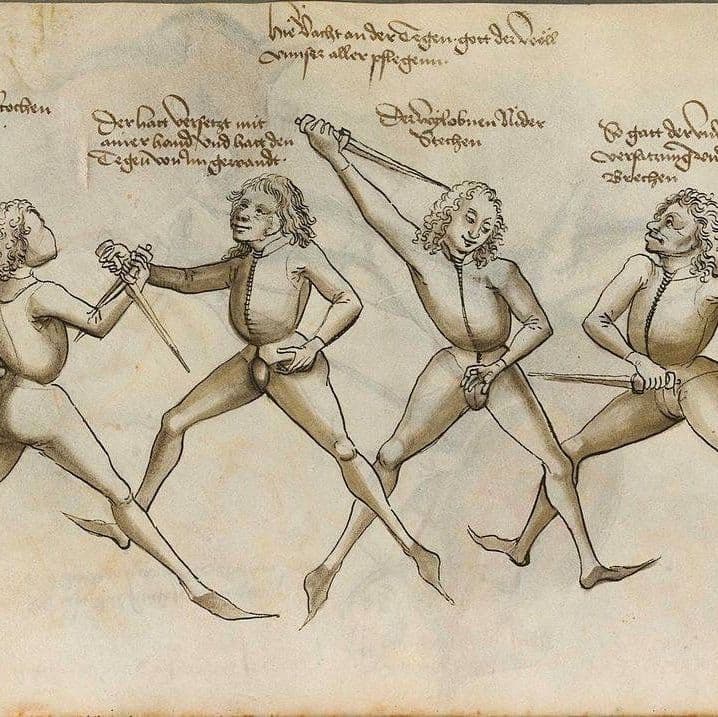 hie vacht an der Tegen gott der wöll
vnnser aller pflegenn
stochen
Der hatt versetzt mit
ainer hand vnd hatt den
Tegen von im gewandt
Der Nider
Stechen
So gatt der
versatzung
Brechen